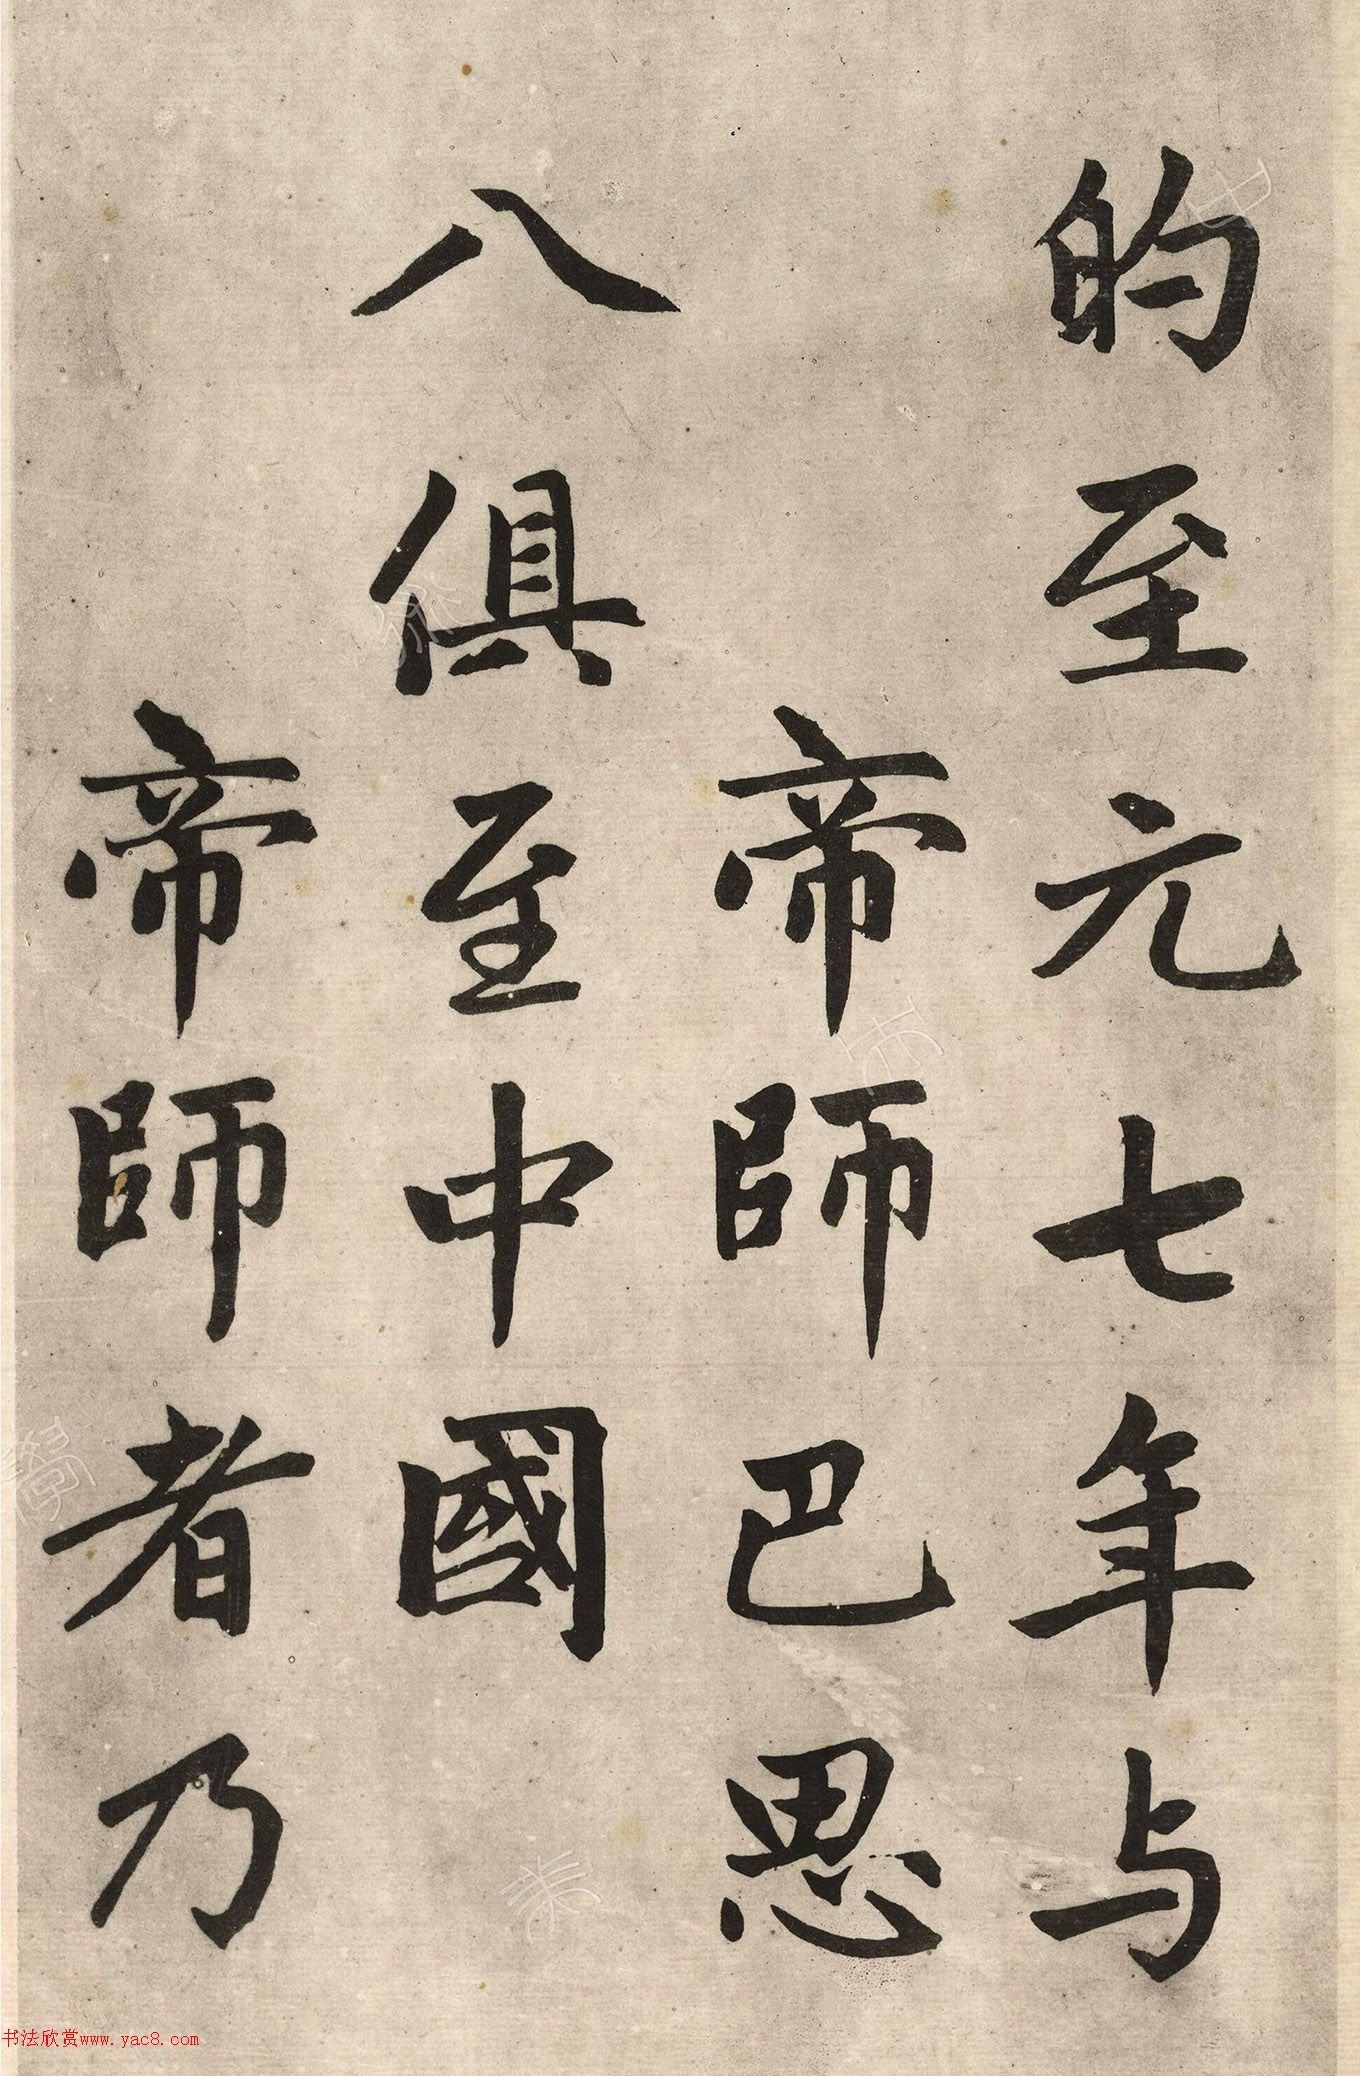 的至元七年与
帝師巴思
八俱至中國
帝師者乃
书法欣赏www.yac8.com